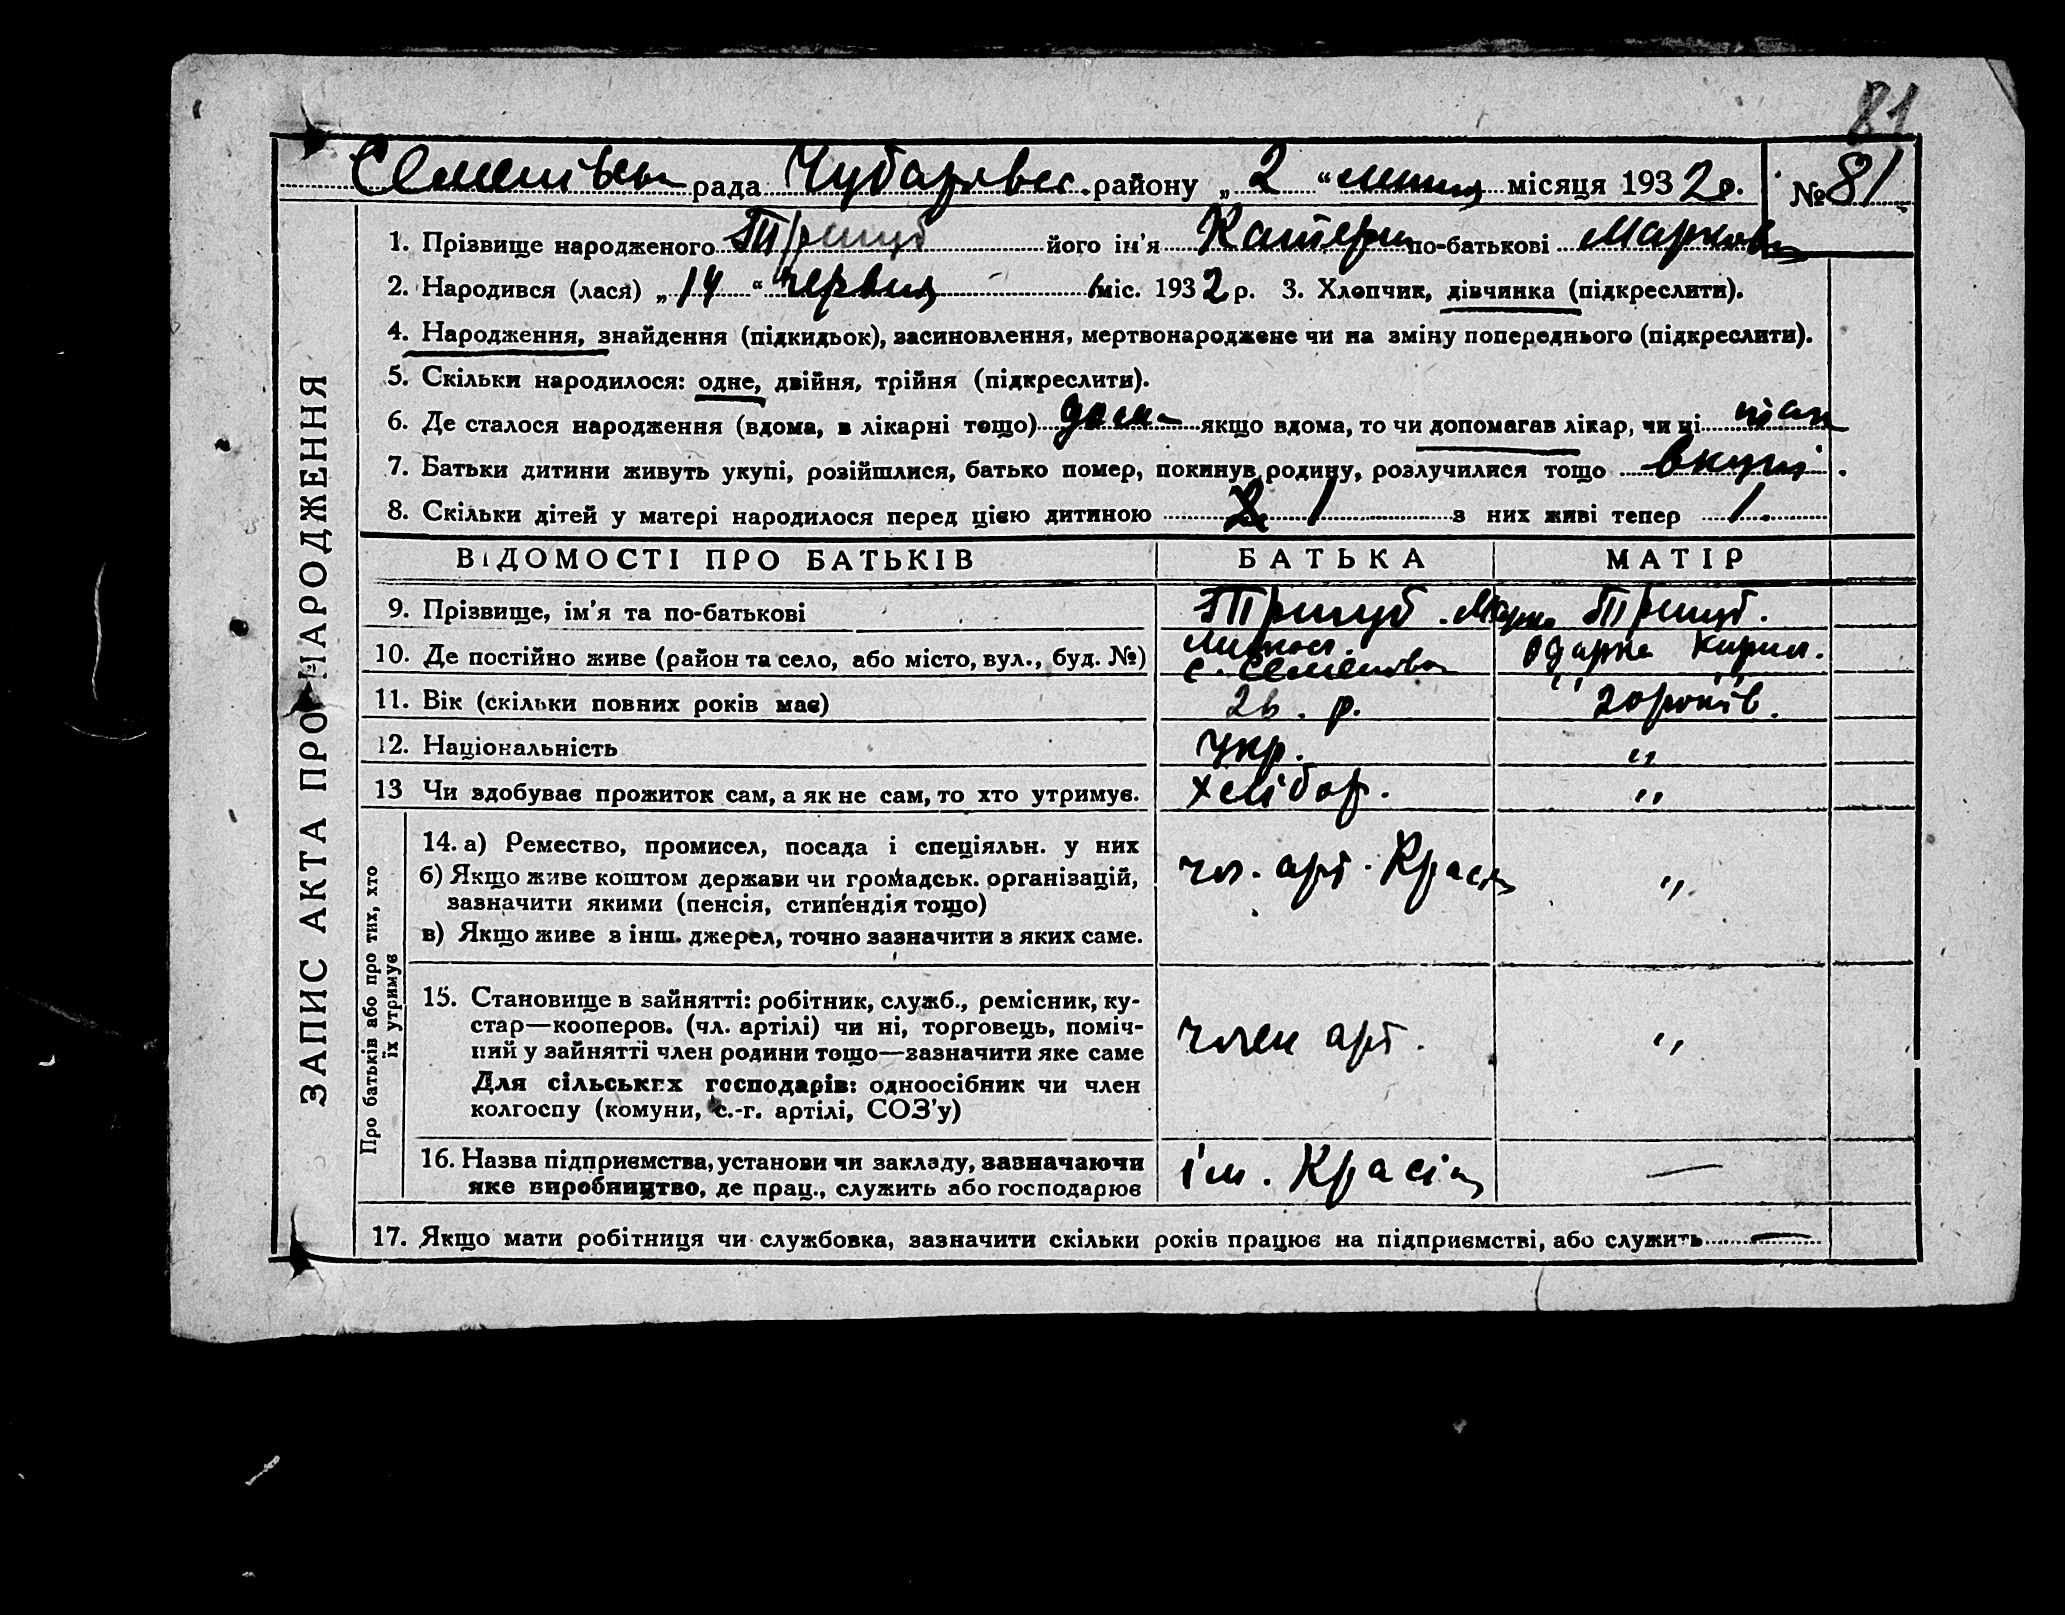 81
Семенівська рада Чубарівськ. району „ 2 “ липня місяця 1932 р. № 81
1. Прізвище народженого Пришуб його ін'я Катери по-батькові Марков
2. Народився (лася) „ 14 “ червня міс. 1932 р. 3. Хлопчик, дівчинка (підкреслити).
4. Народження, знайдення (підкидьок), засиновлення, мертвонароджене чи на зміну попереднього (підкреслити).
5. Скільки народилося: одне, двійня, трійня (підкреслити).
6. Де сталося народження (вдома, в лікарні тощо) дома якщо вдома, то чи допомагав лікар, чи ні
7. Батьки дитини живуть укупі, розійшлися, батько помер, покинув родину, розлучилися тощо вкупі.
8. Скільки дітей у матері народилося перед цією дитиною 1 з них живі тепер 1.
ВІДОМОСТІ ПРО БАТЬКІВ БАТЬКА МАТІР
9. Прізвище, ім'я та по-батькові Пришуб. Марко Пришуб.
10. Де постійно живе (район та село, або місто, вул., буд. №) с. Семеновка Одарка Кирил.
11. Вік (скільки повних років має) 26. р. 20 років.
12. Національність Укр. "
13 Чи здобуває прожиток сам, а як не сам, то хто утримує. хлібор. "
14. а) Ремество, промисел, посада і спеціяльн. у них
б) Якщо живе коштом держави чи громадськ. організацій, чл. арт. Красін "
зазначити якими (пенсія, стипендія тощо)
в) Якщо живе з інш. джерел, точно зазначити з яких саме.
15. Становище в зайнятті: робітник, служб., ремісник, ку-
стар—кооперов. (чл. артілі) чи ні, торговець, поміч-
ний у зайнятті член родини тощо—зазначити яке саме член арт. "
Для сільських господарів: одноосібник чи член
колгоспу (комуни, с.-г. артілі, СОЗ'у)
16. Назва підприємства, установи чи закладу, зазначаючи ім. Красін —
яке виробництво, де прац., служить або господарює
17. Якщо мати робітниця чи службовка, зазначити скільки років працює на підприємстві, або служить —
ЗАПИС АКТА ПРО НАРОДЖЕННЯ
Про батьків або про тих, хто
їх утримує